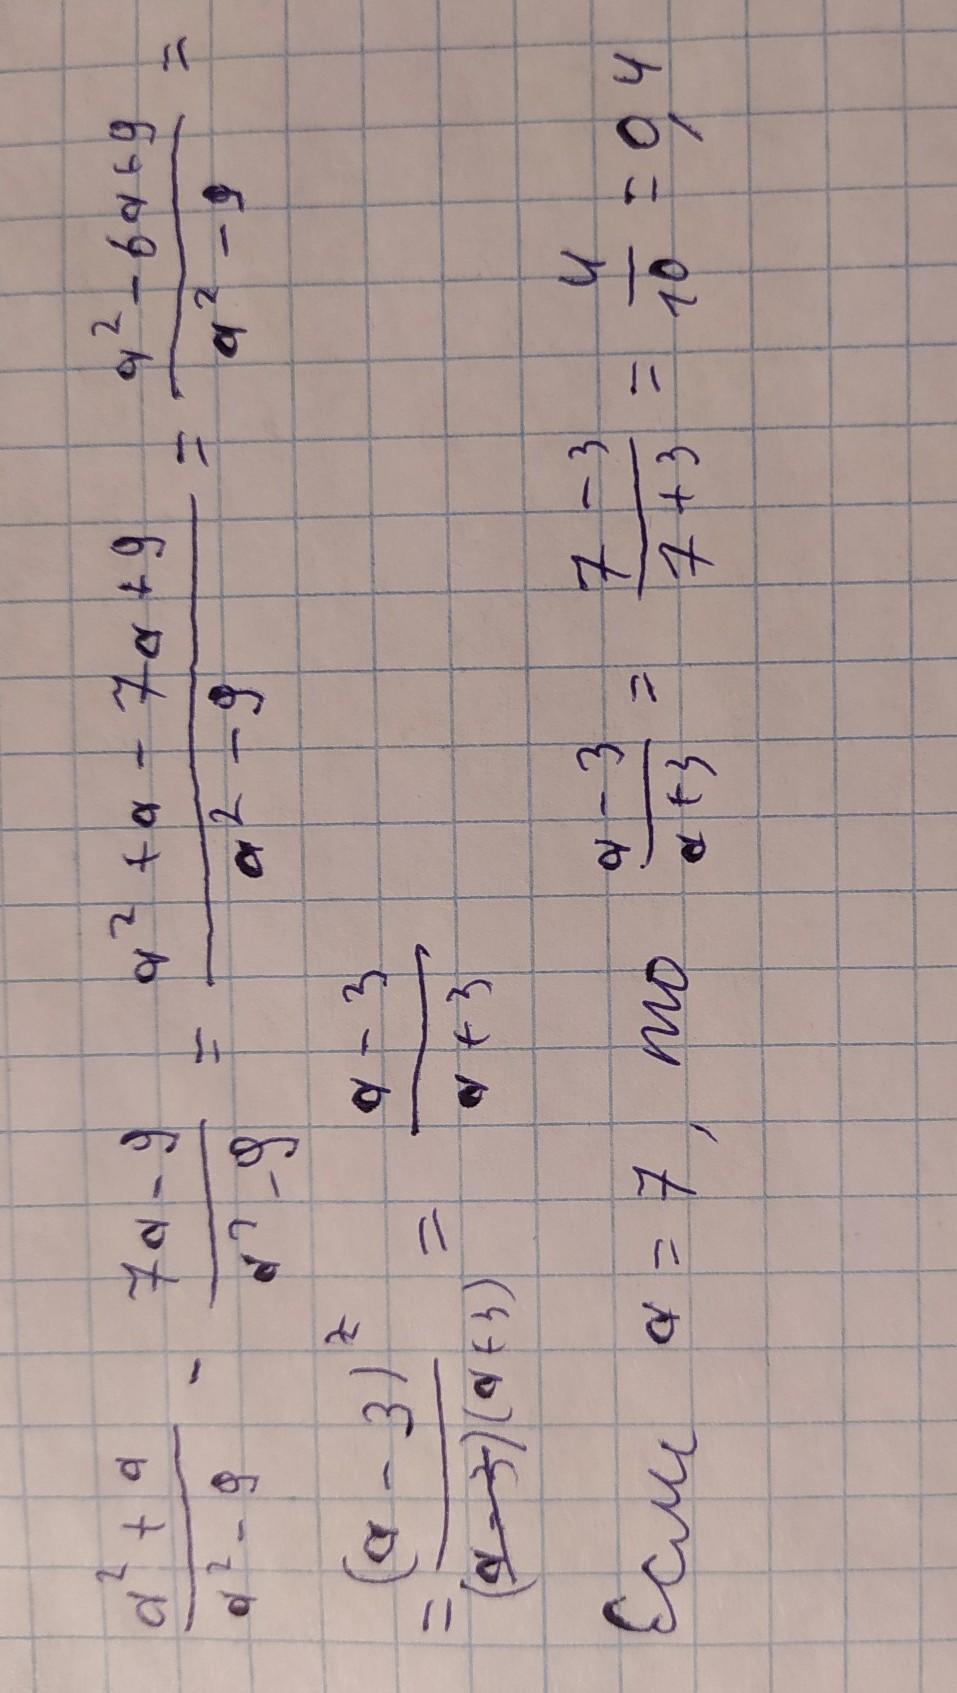 (a² + a)/(a² - 9) - (7a - 9)/(a² - 9) = (a² + a - 7a + 9)/(a² - 9) = (a² - 6a + 9)/(a² - 9) =
= (a - 3)²/((a - 3)(a + 3)) = (a - 3)/(a + 3)
Если a = 7, то (a - 3)/(a + 3) = (7 - 3)/(7 + 3) = 4/10 = 0,4